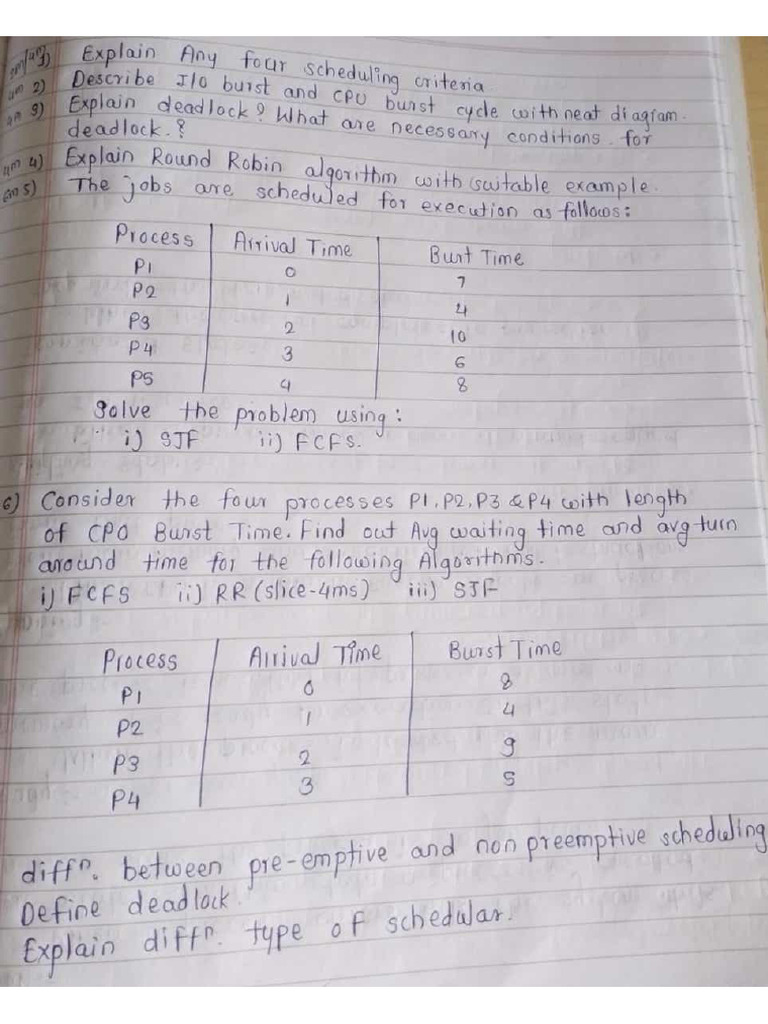 2m/4m 1) Explain Any four scheduling criteria
4m 2) Describe I/O burst and CPU burst cycle with neat diagram.
4m 3) Explain deadlock? What are necessary conditions for
deadlock.?
4m 4) Explain Round Robin algorithm with suitable example.
6m 5) The jobs are scheduled for execution as follows:
Process Arrival Time Burt Time
P1 0 7
P2 1 4
P3 2 10
P4 3 6
P5 4 8
Solve the problem using:
i) SJF ii) FCFS.
6) Consider the four processes P1, P2, P3 & P4 with length
of CPO Burst Time. Find out Avg waiting time and avg turn
around time for the following Algorithms.
i) FCFS ii) RR (slice-4ms) iii) SJF
Process Arrival Time Burst Time
P1 0 8
P2 1 4
P3 2 9
P4 3 5
diffn. between pre-emptive and non preemptive scheduling
Define deadlock.
Explain diffn. type of schedular.